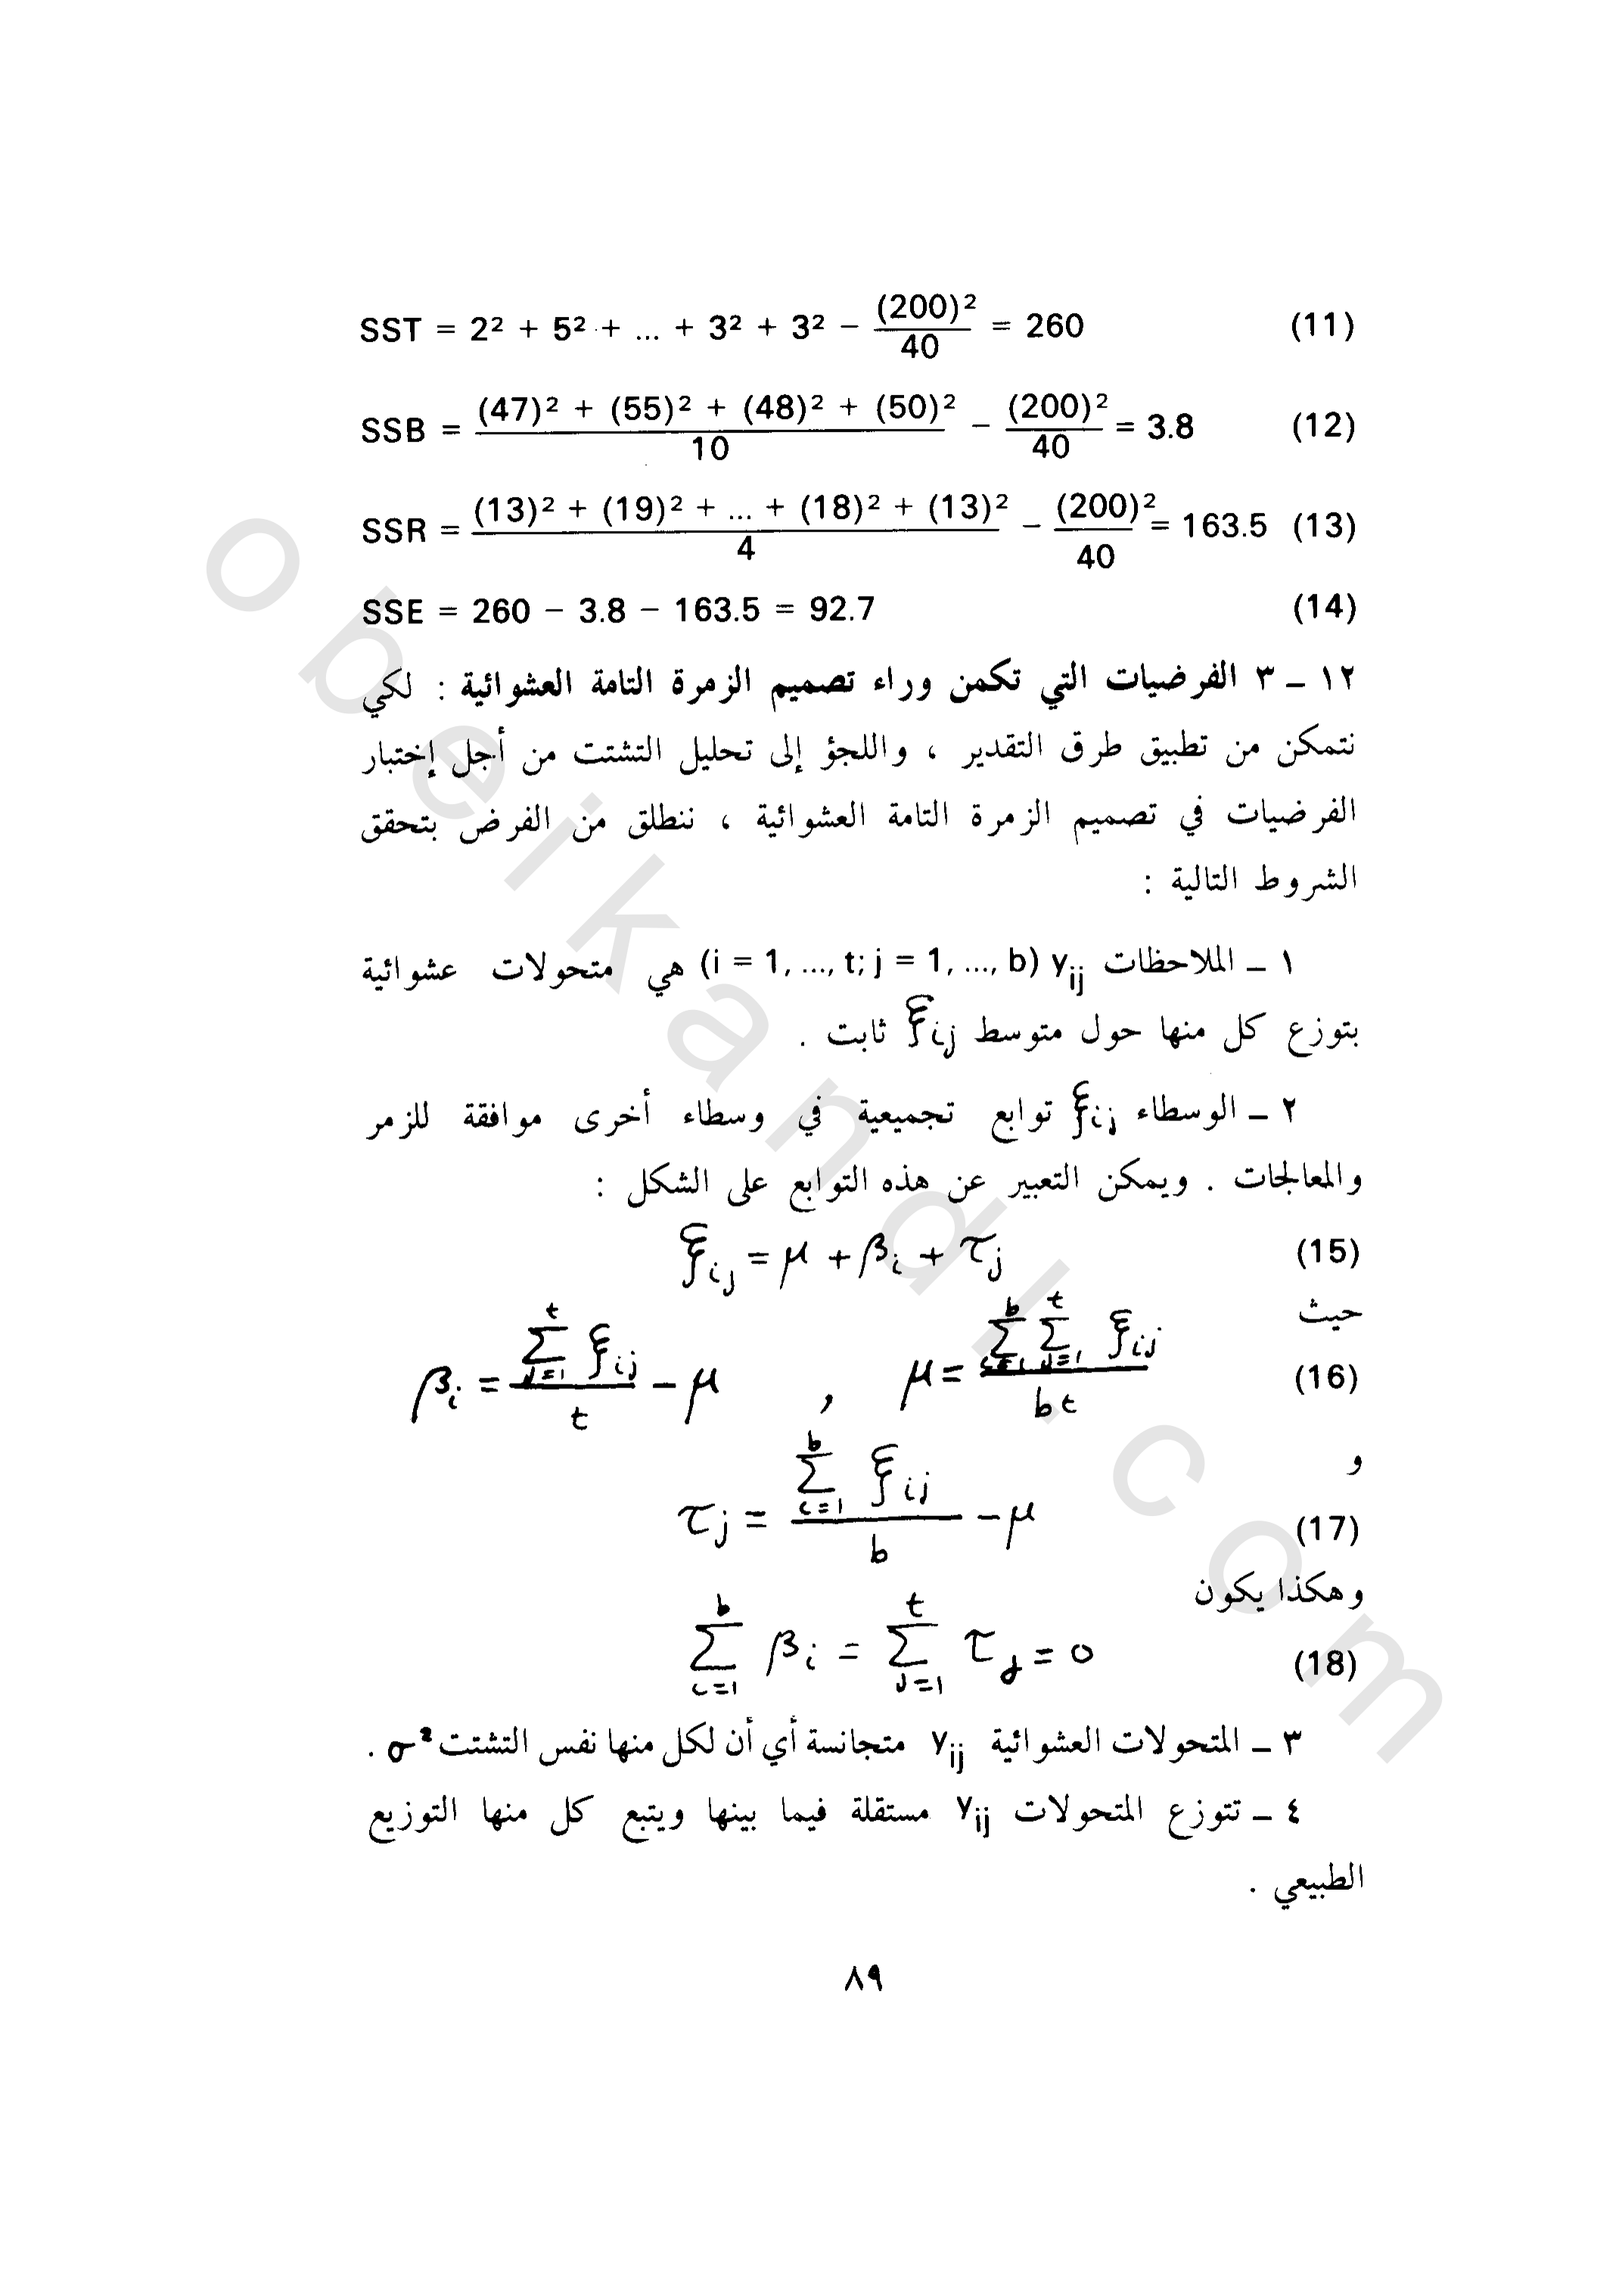 SST = 2² + 5² + ... + 3² + 3² − (200)²/40 = 260 (11)
SSB = ((47)² + (55)² + (48)² + (50)²)/10 − (200)²/40 = 3.8 (12)
SSR = ((13)² + (19)² + ... + (18)² + (13)²)/4 − (200)²/40 = 163.5 (13)
SSE = 260 − 3.8 − 163.5 = 92.7 (14)
١٢ ــ ٣ الفرضيات التي تكمن وراء تصميم الزمرة التامة العشوائية : لكي
نتمكن من تطبيق طرق التقدير ، واللجؤ إلى تحليل التشتت من أجل إختبار
الفرضيات في تصميم الزمرة التامة العشوائية ، ننطلق من الفرض بتحقق
الشروط التالية :
١ ــ الملاحظات yᵢⱼ (i = 1, ..., t; j = 1, ..., b) هي متحولات عشوائية
بتوزع كل منها حول متوسط ξᵢⱼ ثابت .
٢ ــ الوسطاء ξᵢⱼ توابع تجميعية في وسطاء أخرى موافقة للزمر
والمعالجات . ويمكن التعبير عن هذه التوابع على الشكل :
ξᵢⱼ = μ + βᵢ + τⱼ (15)
حيث
βᵢ = (Σ_{j=1}^{t} ξᵢⱼ)/t − μ , μ = (Σ_{i=1}^{b} Σ_{j=1}^{t} ξᵢⱼ)/bt (16)
و
τⱼ = (Σ_{i=1}^{b} ξᵢⱼ)/b − μ (17)
وهكذا يكون
Σ_{i=1}^{b} βᵢ = Σ_{j=1}^{t} τⱼ = 0 (18)
٣ ــ المتحولات العشوائية yᵢⱼ متجانسة أي أن لكل منها نفس التشتت σ² .
٤ ــ تتوزع المتحولات yᵢⱼ مستقلة فيما بينها ويتبع كل منها التوزيع
الطبيعي .
٨٩
obeikandl.com